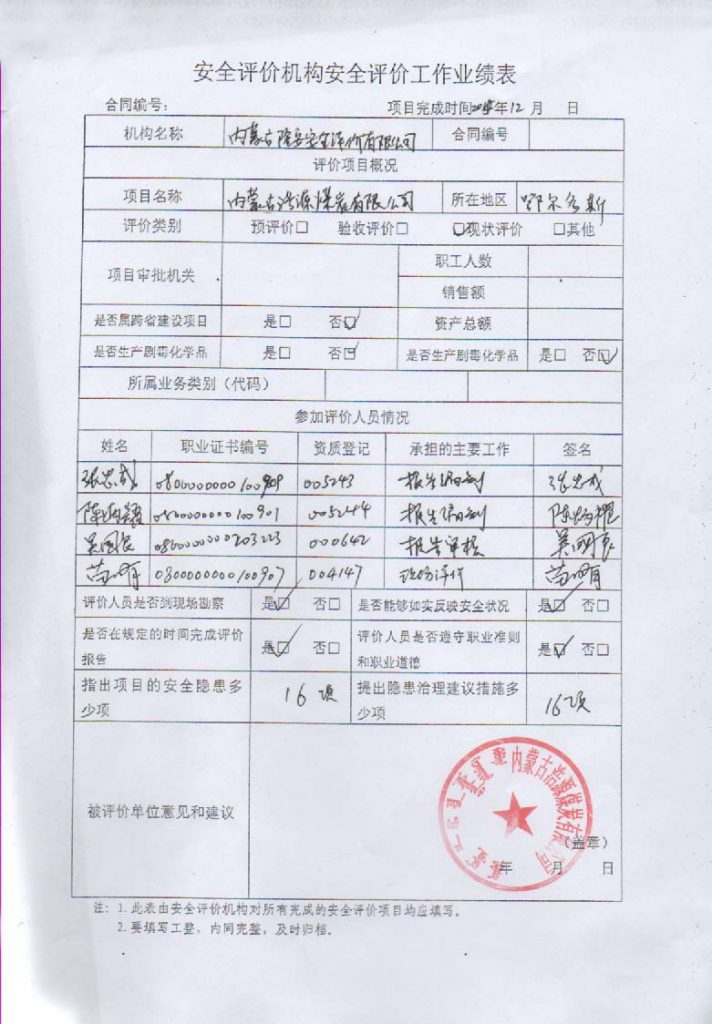 安全评价机构安全评价工作业绩表
合同编号： 项目完成时间 年12月 日
机构名称 内蒙古 安安全评价有限公司 合同编号
评价项目概况
项目名称 内蒙古浩源煤炭有限公司 所在地区 鄂尔多斯
评价类别 预评价□ 验收评价□ ☑现状评价 □其他
项目审批机关 职工人数
销售额
是否属跨省建设项目 是□ 否☑ 资产总额
是否生产剧毒化学品 是□ 否☑ 是否生产剧毒化学品 是□ 否☑
所属业务类别（代码）
参加评价人员情况
姓名 职业证书编号 资质登记 承担的主要工作 签名
张忠成 0800000000100909 005243 报告编制 张忠成
陈 0800000000100901 005244 报告编制 陈
吴国良 0800000000203223 000642 报告审核 吴国良
苗 0800000000100907 004147 现场评价 苗
评价人员是否到现场勘察 是☑ 否□ 是否能够如实反映安全状况 是☑ 否□
是否在规定的时间完成评价报告 是☑ 否□ 评价人员是否遵守职业准则和职业道德 是☑ 否□
指出项目的安全隐患多少项 16项 提出隐患治理建议措施多少项 16项
被评价单位意见和建议
内蒙古浩源煤炭有限公司
（盖章）
年 月 日
注：1.此表由安全评价机构对所有完成的安全评价项目均应填写。
2.要填写工整，内同完整，及时归档。